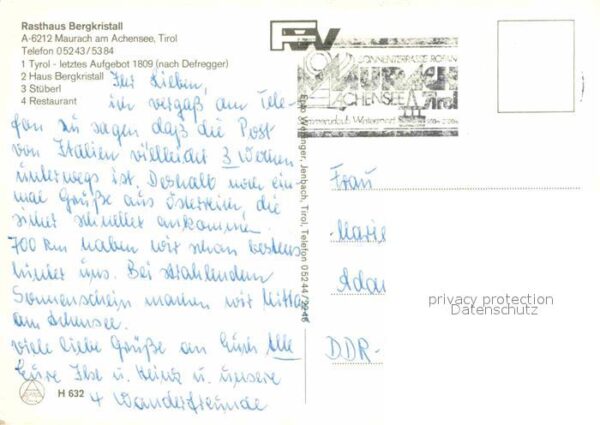 Rasthaus Bergkristall
A-6212 Maurach am Achensee, Tirol
Telefon 05243/5384
1 Tyrol - letztes Aufgebot 1809 (nach Defregger)
2 Haus Bergkristall
3 Stüberl
4 Restaurant
Ihr Lieben,
ich vergaß am Tele-
fon zu sagen daß die Post
von Italien vielleicht 3 Wochen
unterwegs ist. Deshalb noch ein-
mal Grüße aus Österreich, die
sicher schneller ankommen.
700 km haben wir schon bestens
hinter uns. Bei strahlendem
Sonnenschein machen wir Mittag
am Achensee.
Viele liebe Grüße an Euch Alle
Eure Ilse u. Heinz u. unsere
4 Wanderfreunde
H 632
Jenbach, Tirol, Telefon 05244/2246
SONNENTERRASSE ROFAN
Maurach
ACHENSEE Tirol
Sommerurlaub Wintersport
Frau
Marie
Adam
DDR-
privacy protection
Datenschutz